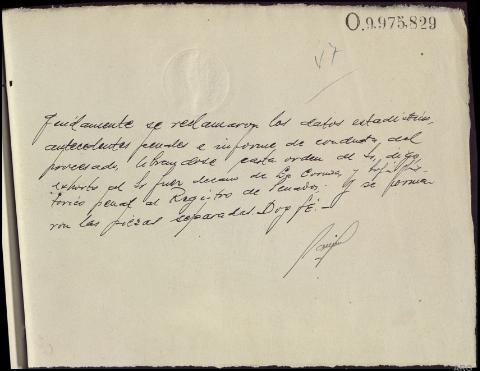 O.9.975.829
se reclamaron los datos estadísticos,
antecedentes penales e informe de conducta del
procesado, librándose carta orden al digo
exhorto al Sr Juez decano de La Coruña, y
penal al Registro de Penados. Y se forma-
ron las piezas separadas. Doy fé.—